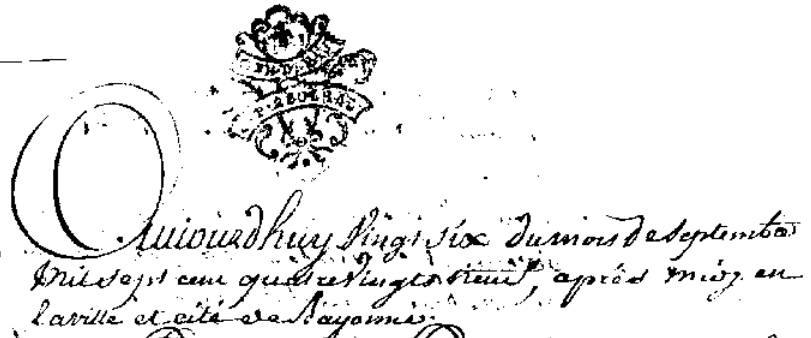 Aujourdhuy Vingt six du mois de Septembre
mil sept cent quatre Vingts neuf, après midy en
la ville et cité de Bayonne.